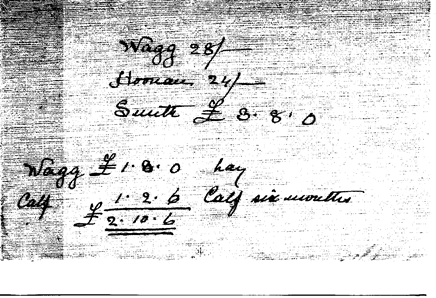 Wagg 28/-
24/-
Smith £ 3. 8. 0
Wagg £1. 8. 0 hay
Calf 1. 2. 6 Calf six months
£ 2. 10. 6